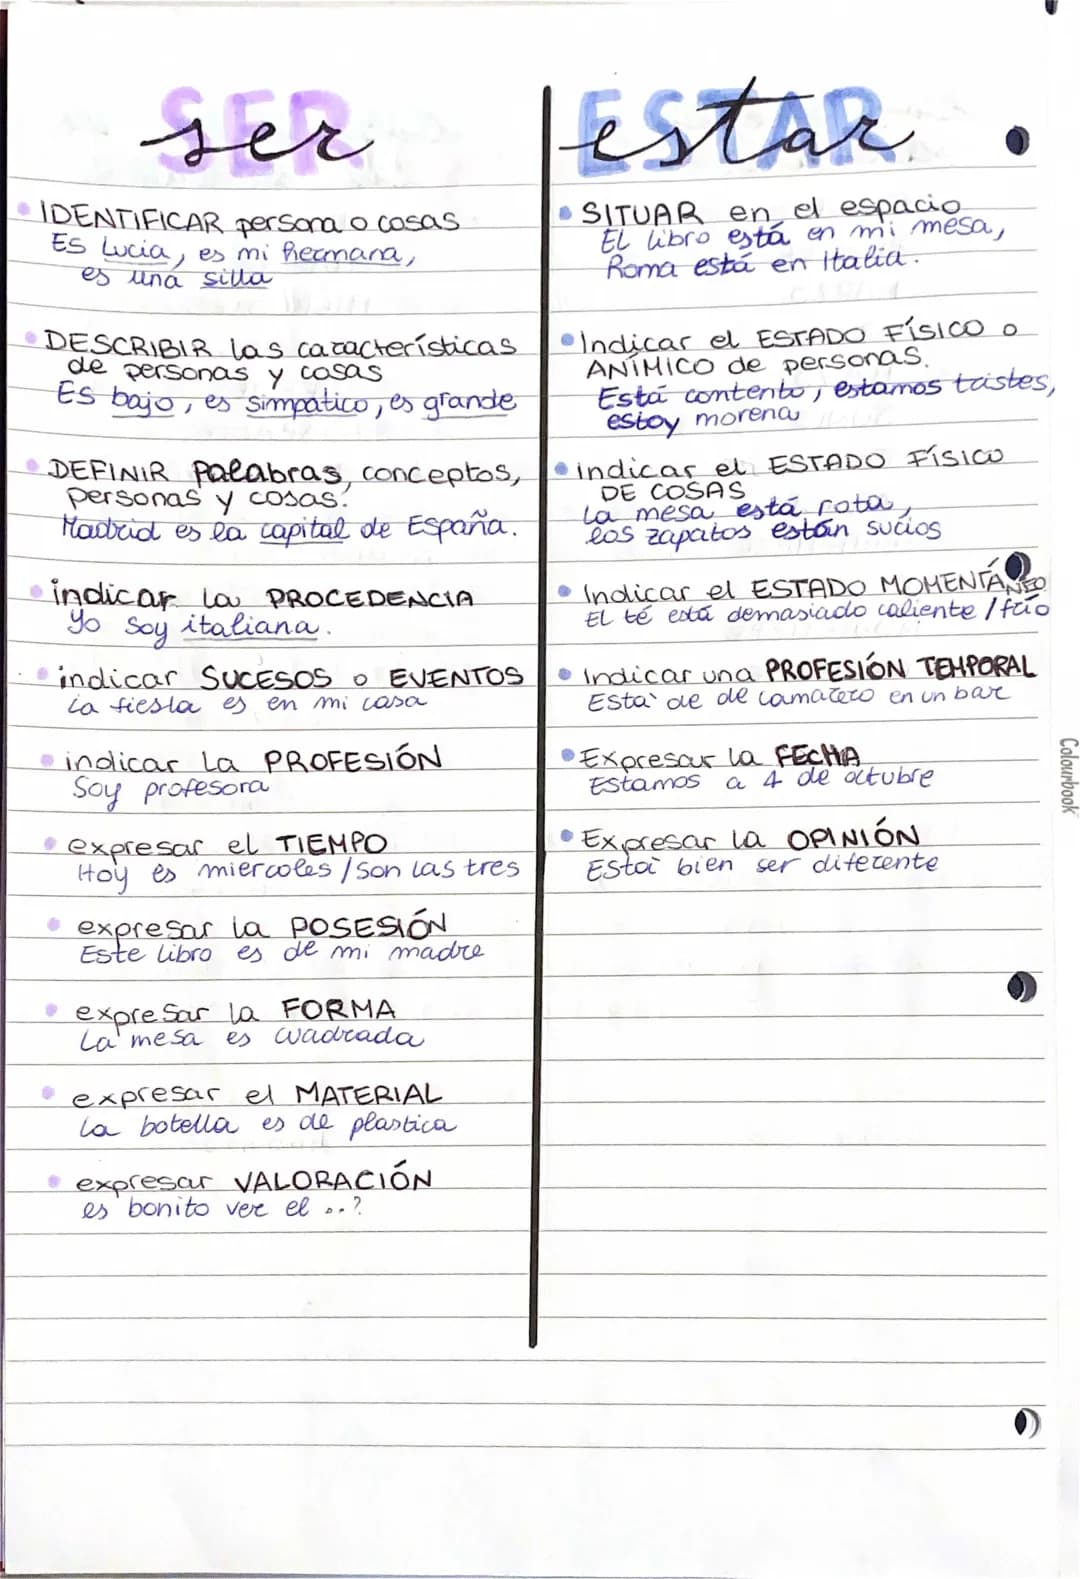 SER
ser
IDENTIFICAR persona o cosas
Es Lucia, es mi hermana,
es una silla
DESCRIBIR las características
de personas y cosas
Es bajo, es simpatico, es grande
DEFINIR Palabras, conceptos,
personas y cosas.
Madrid es la capital de España.
indicar la PROCEDENCIA
Yo soy italiana.
indicar SUCESOS o EVENTOS
La fiesta es en mi casa
indicar La PROFESIÓN
Soy profesora
expresar el TIEMPO
Hoy es miercoles / son las tres
expresar la POSESIÓN
Este libro es de mi madre
expresar la FORMA
La mesa es cuadrada
expresar el MATERIAL
La botella es de plastica
expresar VALORACIÓN
es bonito ver el ..?
ESTAR
estar
SITUAR en el espacio
El libro está en mi mesa,
Roma está en Italia.
Indicar el ESTADO FÍSICO o
ANÍMICO de personas.
Está contento, estamos tristes,
estoy morena
indicar el ESTADO FÍSICO
DE COSAS
La mesa está rota,
los zapatos están sucios
Indicar el ESTADO MOMENTÁNEO
El té está demasiado caliente / frio
Indicar una PROFESIÓN TEMPORAL
Està de de camarero en un bar
Expresar la FECHA
Estamos a 4 de octubre
Expresar la OPINIÓN
Està bien ser diferente
Colourbook